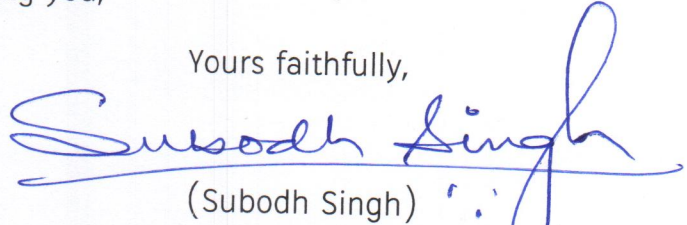 g you,
Yours faithfully,
Subodh Singh
(Subodh Singh)